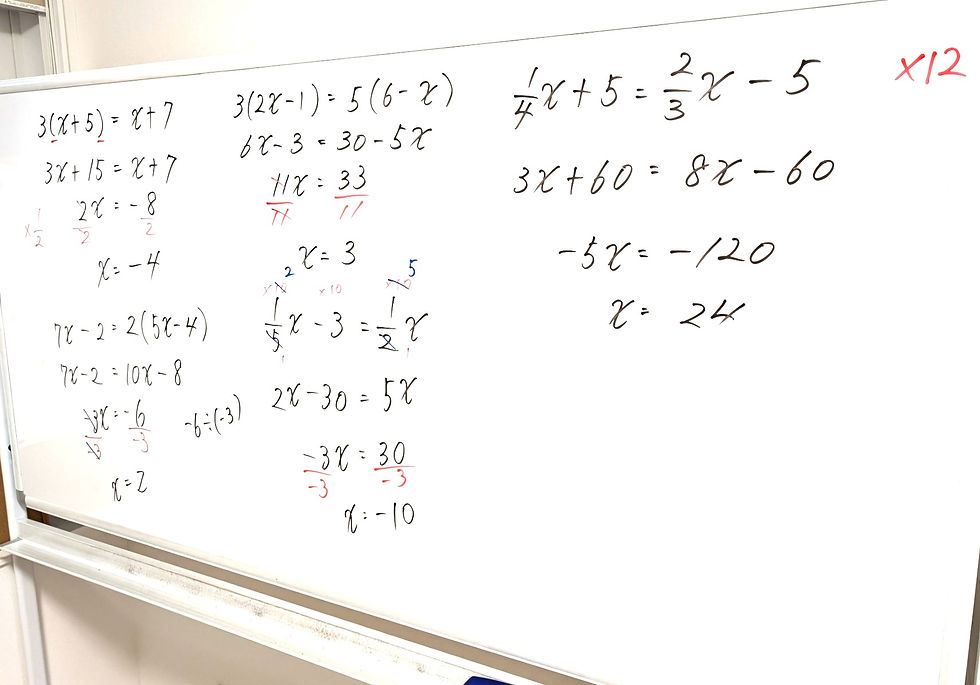 3(x+5) = x+7
3x+15 = x+7
×1/2 2x/2 = -8/2
x = -4
7x-2 = 2(5x-4)
7x-2 = 10x-8
-3x/-3 = -6/-3 -6÷(-3)
x = 2
3(2x-1) = 5(6-x)
6x-3 = 30-5x
11x/11 = 33/11
x = 3
×10 2 ×10 ×10 5
1/5 x - 3 = 1/2 x
1 1
2x-30 = 5x
-3x/-3 = 30/-3
x = -10
1/4 x + 5 = 2/3 x - 5 ×12
3x+60 = 8x-60
-5x = -120
x = 24